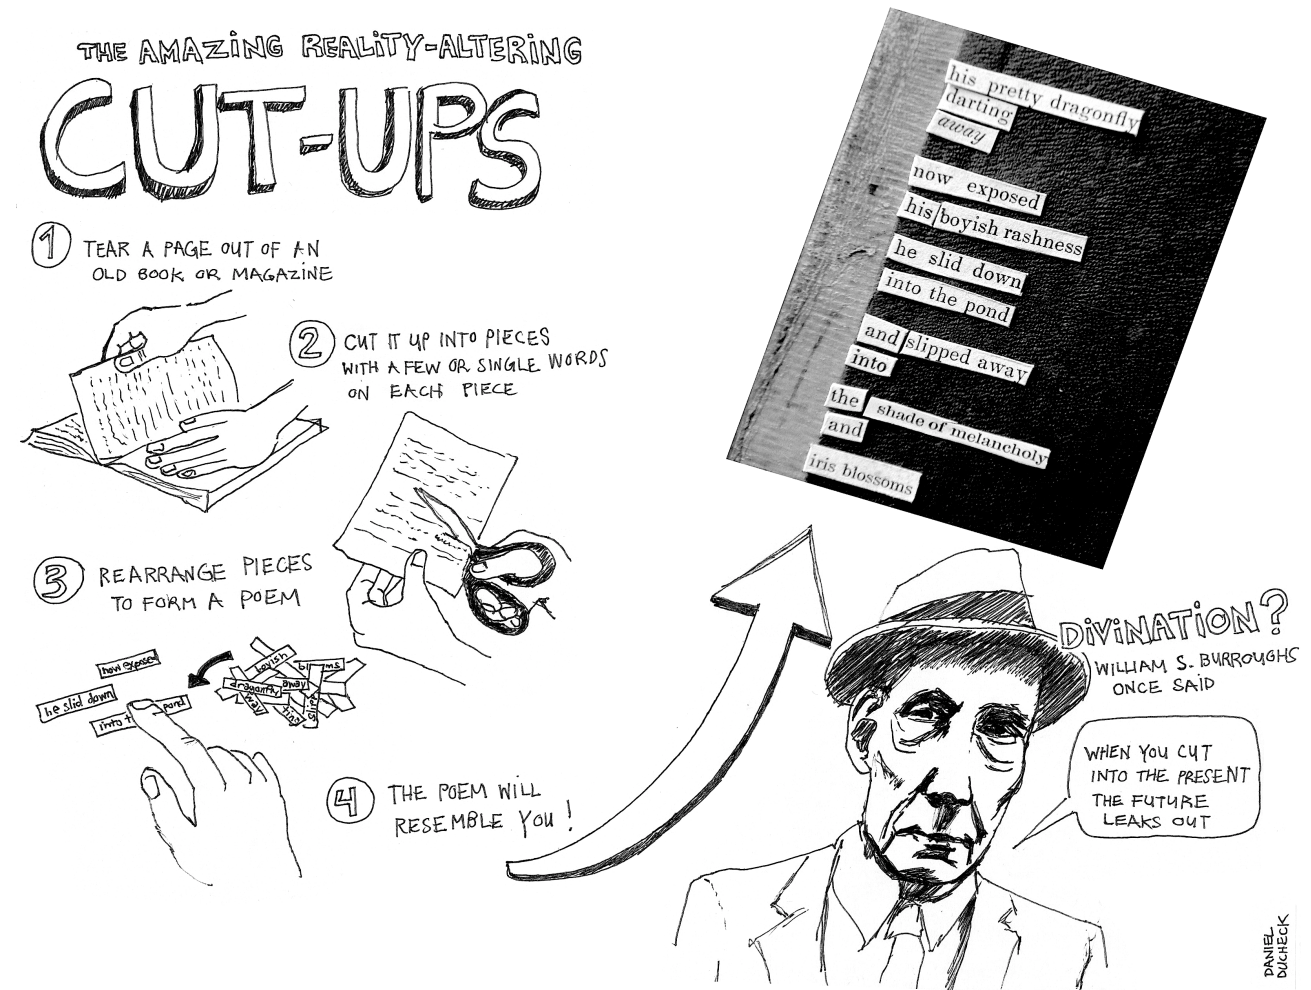 THE AMAZING REALITY-ALTERING
CUT-UPS
1 TEAR A PAGE OUT OF AN
OLD BOOK OR MAGAZINE
2 CUT IT UP INTO PIECES
WITH A FEW OR SINGLE WORDS
ON EACH PIECE
3 REARRANGE PIECES
TO FORM A POEM
now exposed
he slid down
into t pond
boyish
bl ms
dragonfly away
slipp
4 THE POEM WILL
RESEMBLE YOU!
his pretty dragonfly
darting
away
now exposed
his boyish rashness
he slid down
into the pond
and slipped away
into
the shade of melancholy
and
iris blossoms
DIVINATION?
WILLIAM S. BURROUGHS
ONCE SAID
WHEN YOU CUT
INTO THE PRESENT
THE FUTURE
LEAKS OUT
DANIEL
DUCHECK